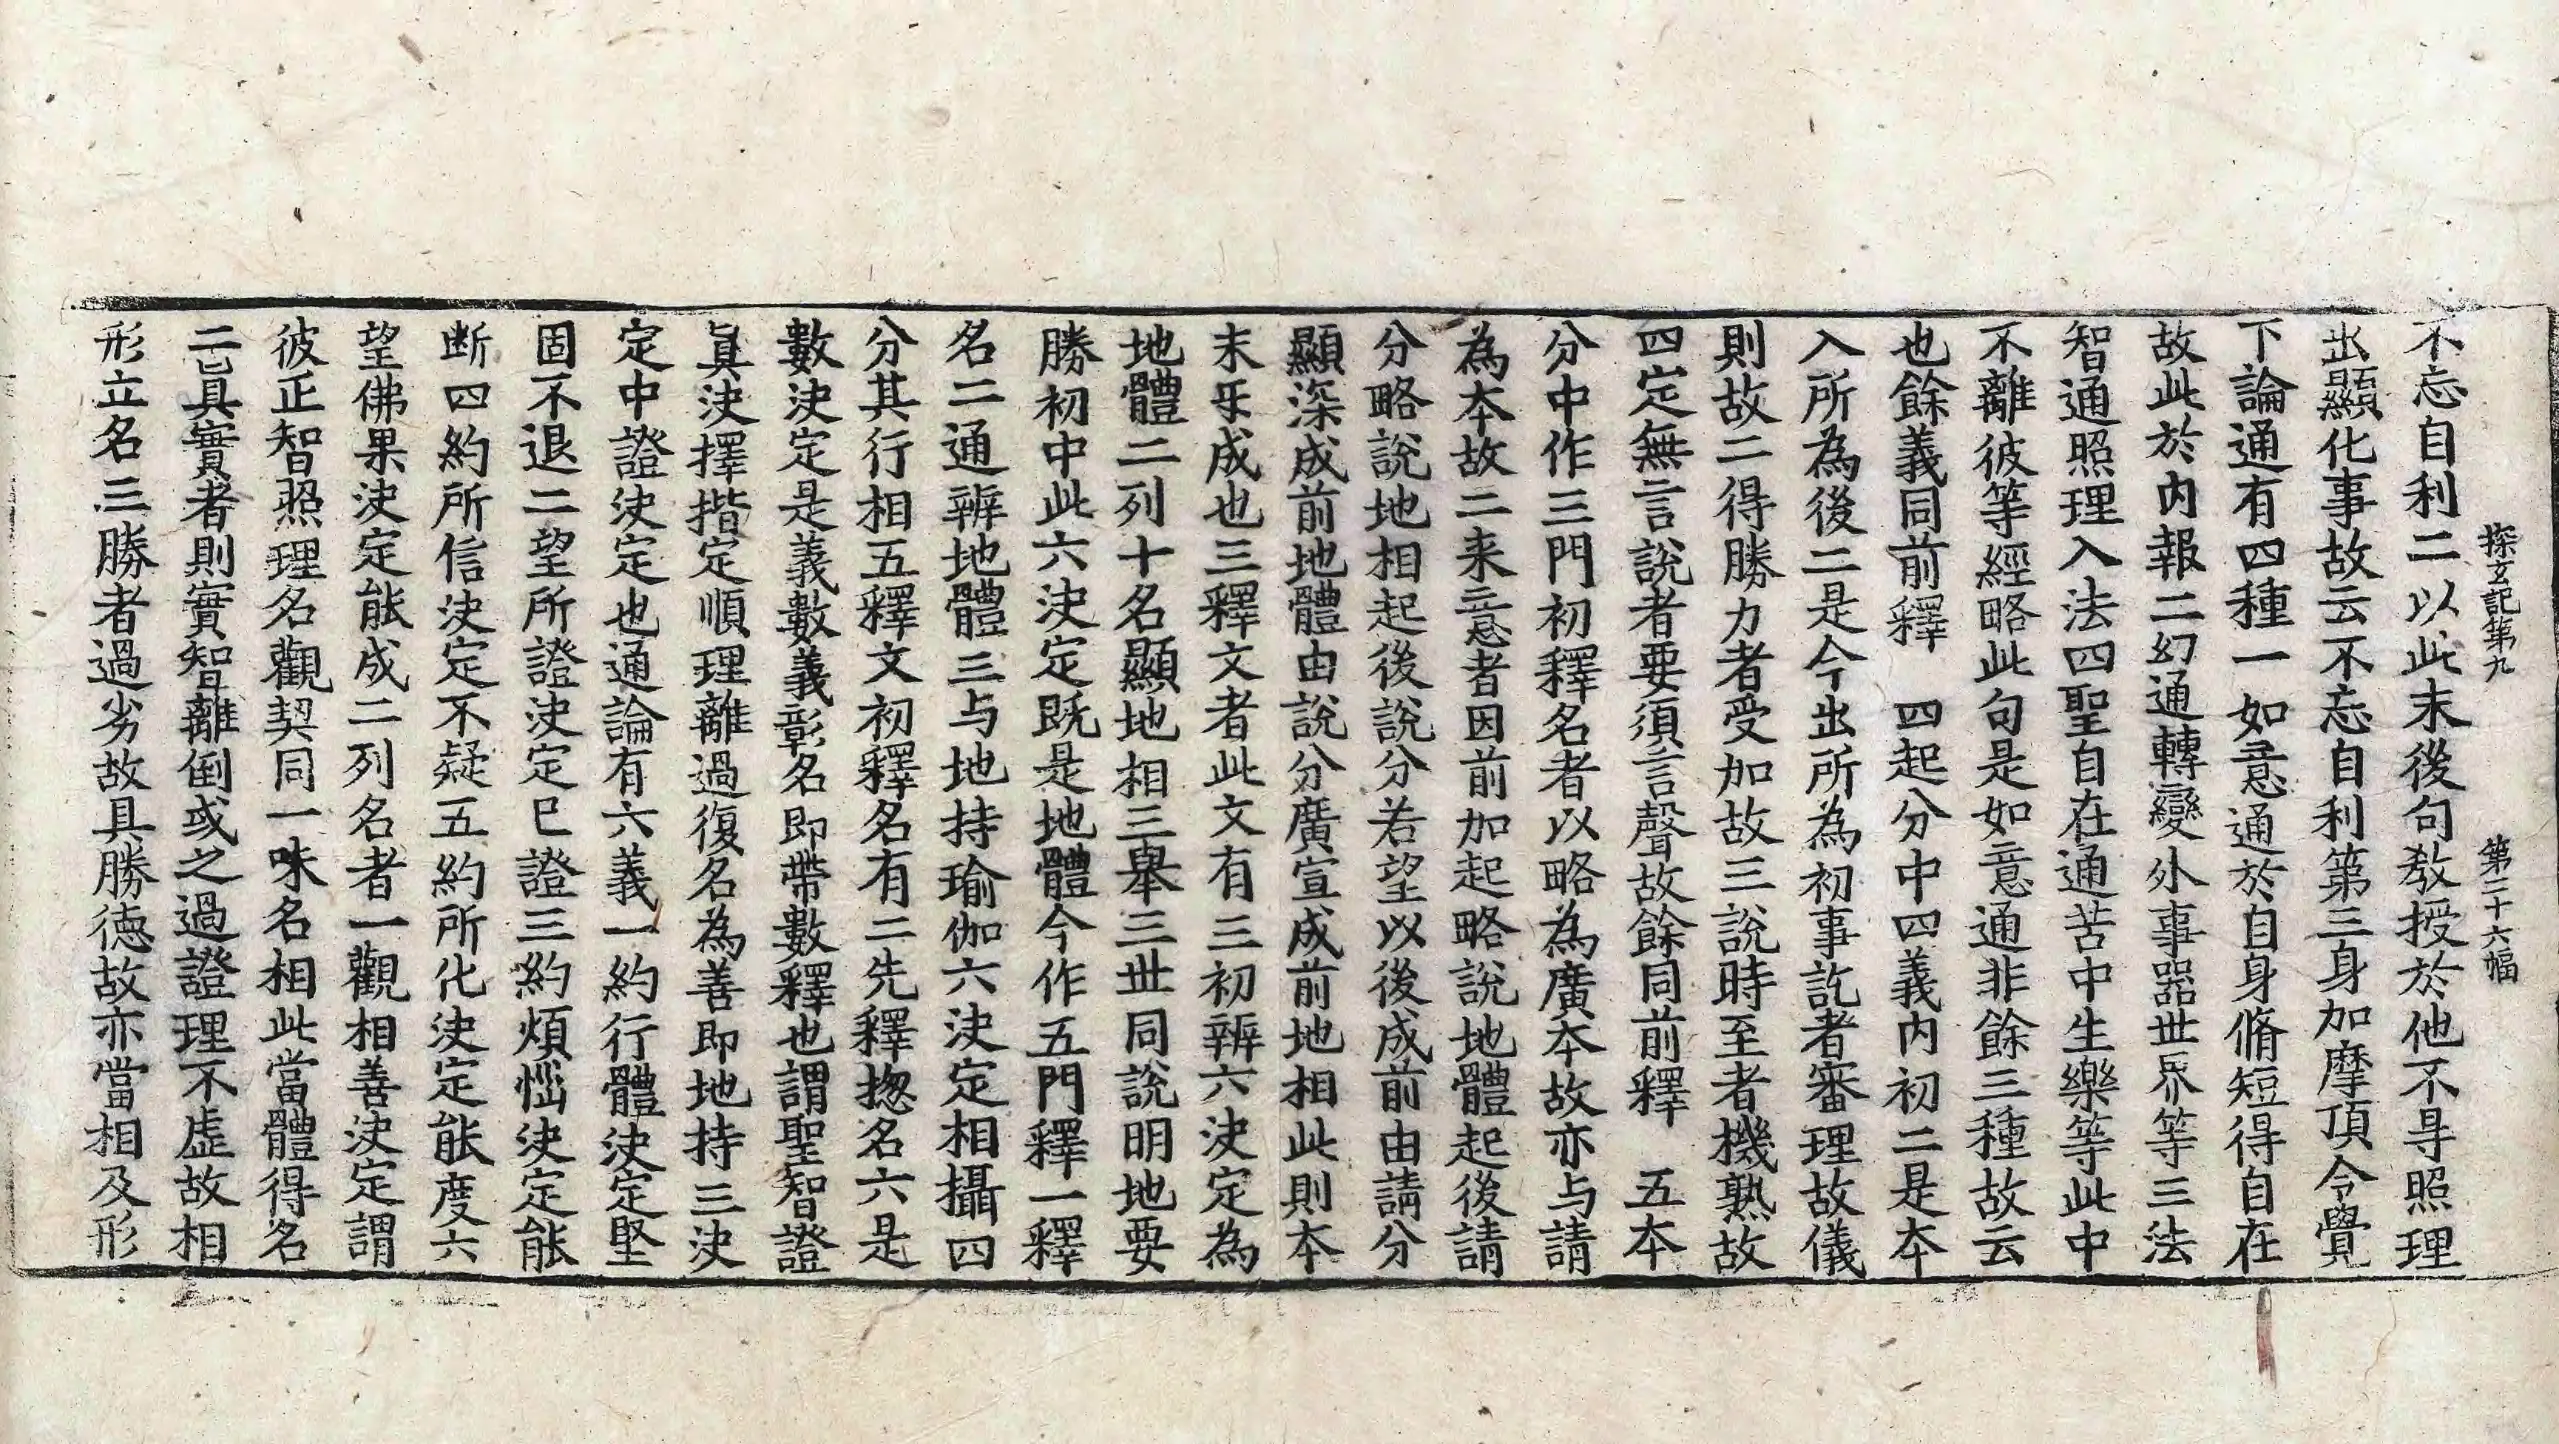 探玄記第九　第二十六幅
不忘自利二以此末後句教授於他不㝵照理
出顯化事故云不忘自利第三身加摩頂令覺
下論通有四種一如意通於自身脩短得自在
故此於內報二幻通轉變外事器世界等三法
智通照理入法四聖自在通苦中生樂等此中
不離彼等經略此句是如意通非餘三種故云
也餘義同前釋　四起分中四義內初二是本
入所為後二是今出所為初事訖者審理故儀
則故二得勝力者受加故三說時至者機熟故
四定無言說者要須言聲故餘同前釋　五本
分中作三門初釋名者以略為廣本故亦与請
為本故二来意者因前加起略說地體起後請
分略說地相起後說分若望以後成前由請分
顯深成前地體由說分廣宣成前地相此則本
末㸦成也三釋文者此文有三初辨六決定為
地體二列十名顯地相三舉三世同說明地要
勝初中此六決定既是地體今作五門釋一釋
名二通辨地體三与地持瑜伽六決定相攝四
分其行相五釋文初釋名有二先釋揔名六是
數決定是義數義彰名即帶數釋也謂聖智證
眞決擇揩定順理離過復名為善即地持三決
定中證決定也通論有六義一約行體決定堅
固不退二望所證決定巳證三約煩惱決定能
断四約所信決定不疑五約所化決定能度六
望佛果決定能成二列名者一觀相善決定謂
彼正智照理名觀契同一味名相此當體得名
二真實者則實智離倒或之過證理不虛故相
形立名三勝者過劣故具勝德故亦當相及形